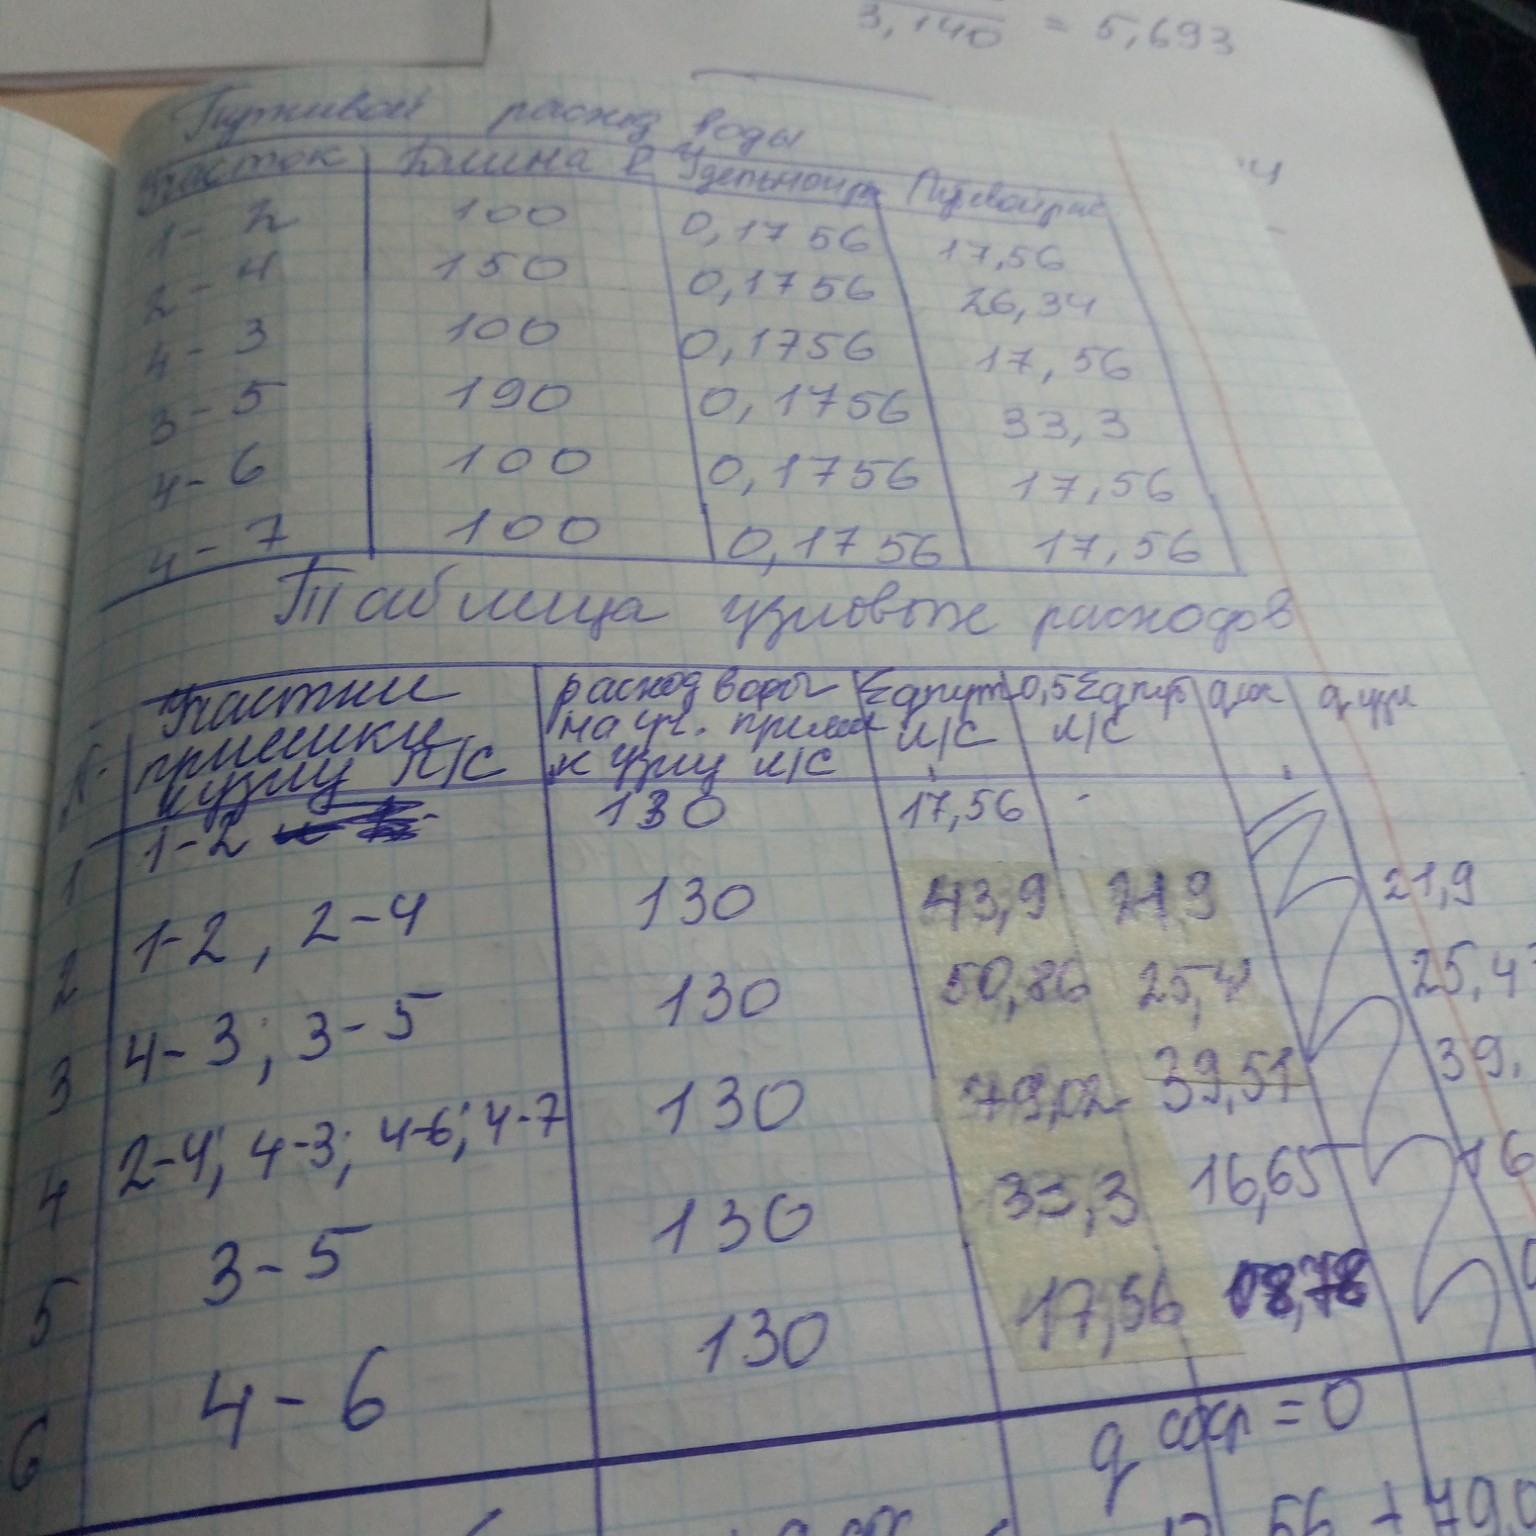 3,140 = 5,693
Путивой расход воды
Участок Длина l Удельной р Путевой рас
1-2 100 0,1756 17,56
2-4 150 0,1756 26,34
4-3 100 0,1756 17,56
3-5 190 0,1756 33,3
4-6 100 0,1756 17,56
4-7 100 0,1756 17,56
Таблица узловых расходов
Участки расход воды Σqпут 0,5Σqпут qсос qузл
примики на уч. прим л/с л/с
к узлу л/с к узлу л/с
1 1-2 130 17,56 -
2 1-2, 2-4 130 43,9 21,9 21,9
3 4-3; 3-5 130 50,86 25,4 25,4
4 2-4; 4-3; 4-6; 4-7 130 79,02 39,51 39,
5 3-5 130 33,3 16,65 16
6 4-6 130 17,56 08,78
q соср = 0
56 + 79,0